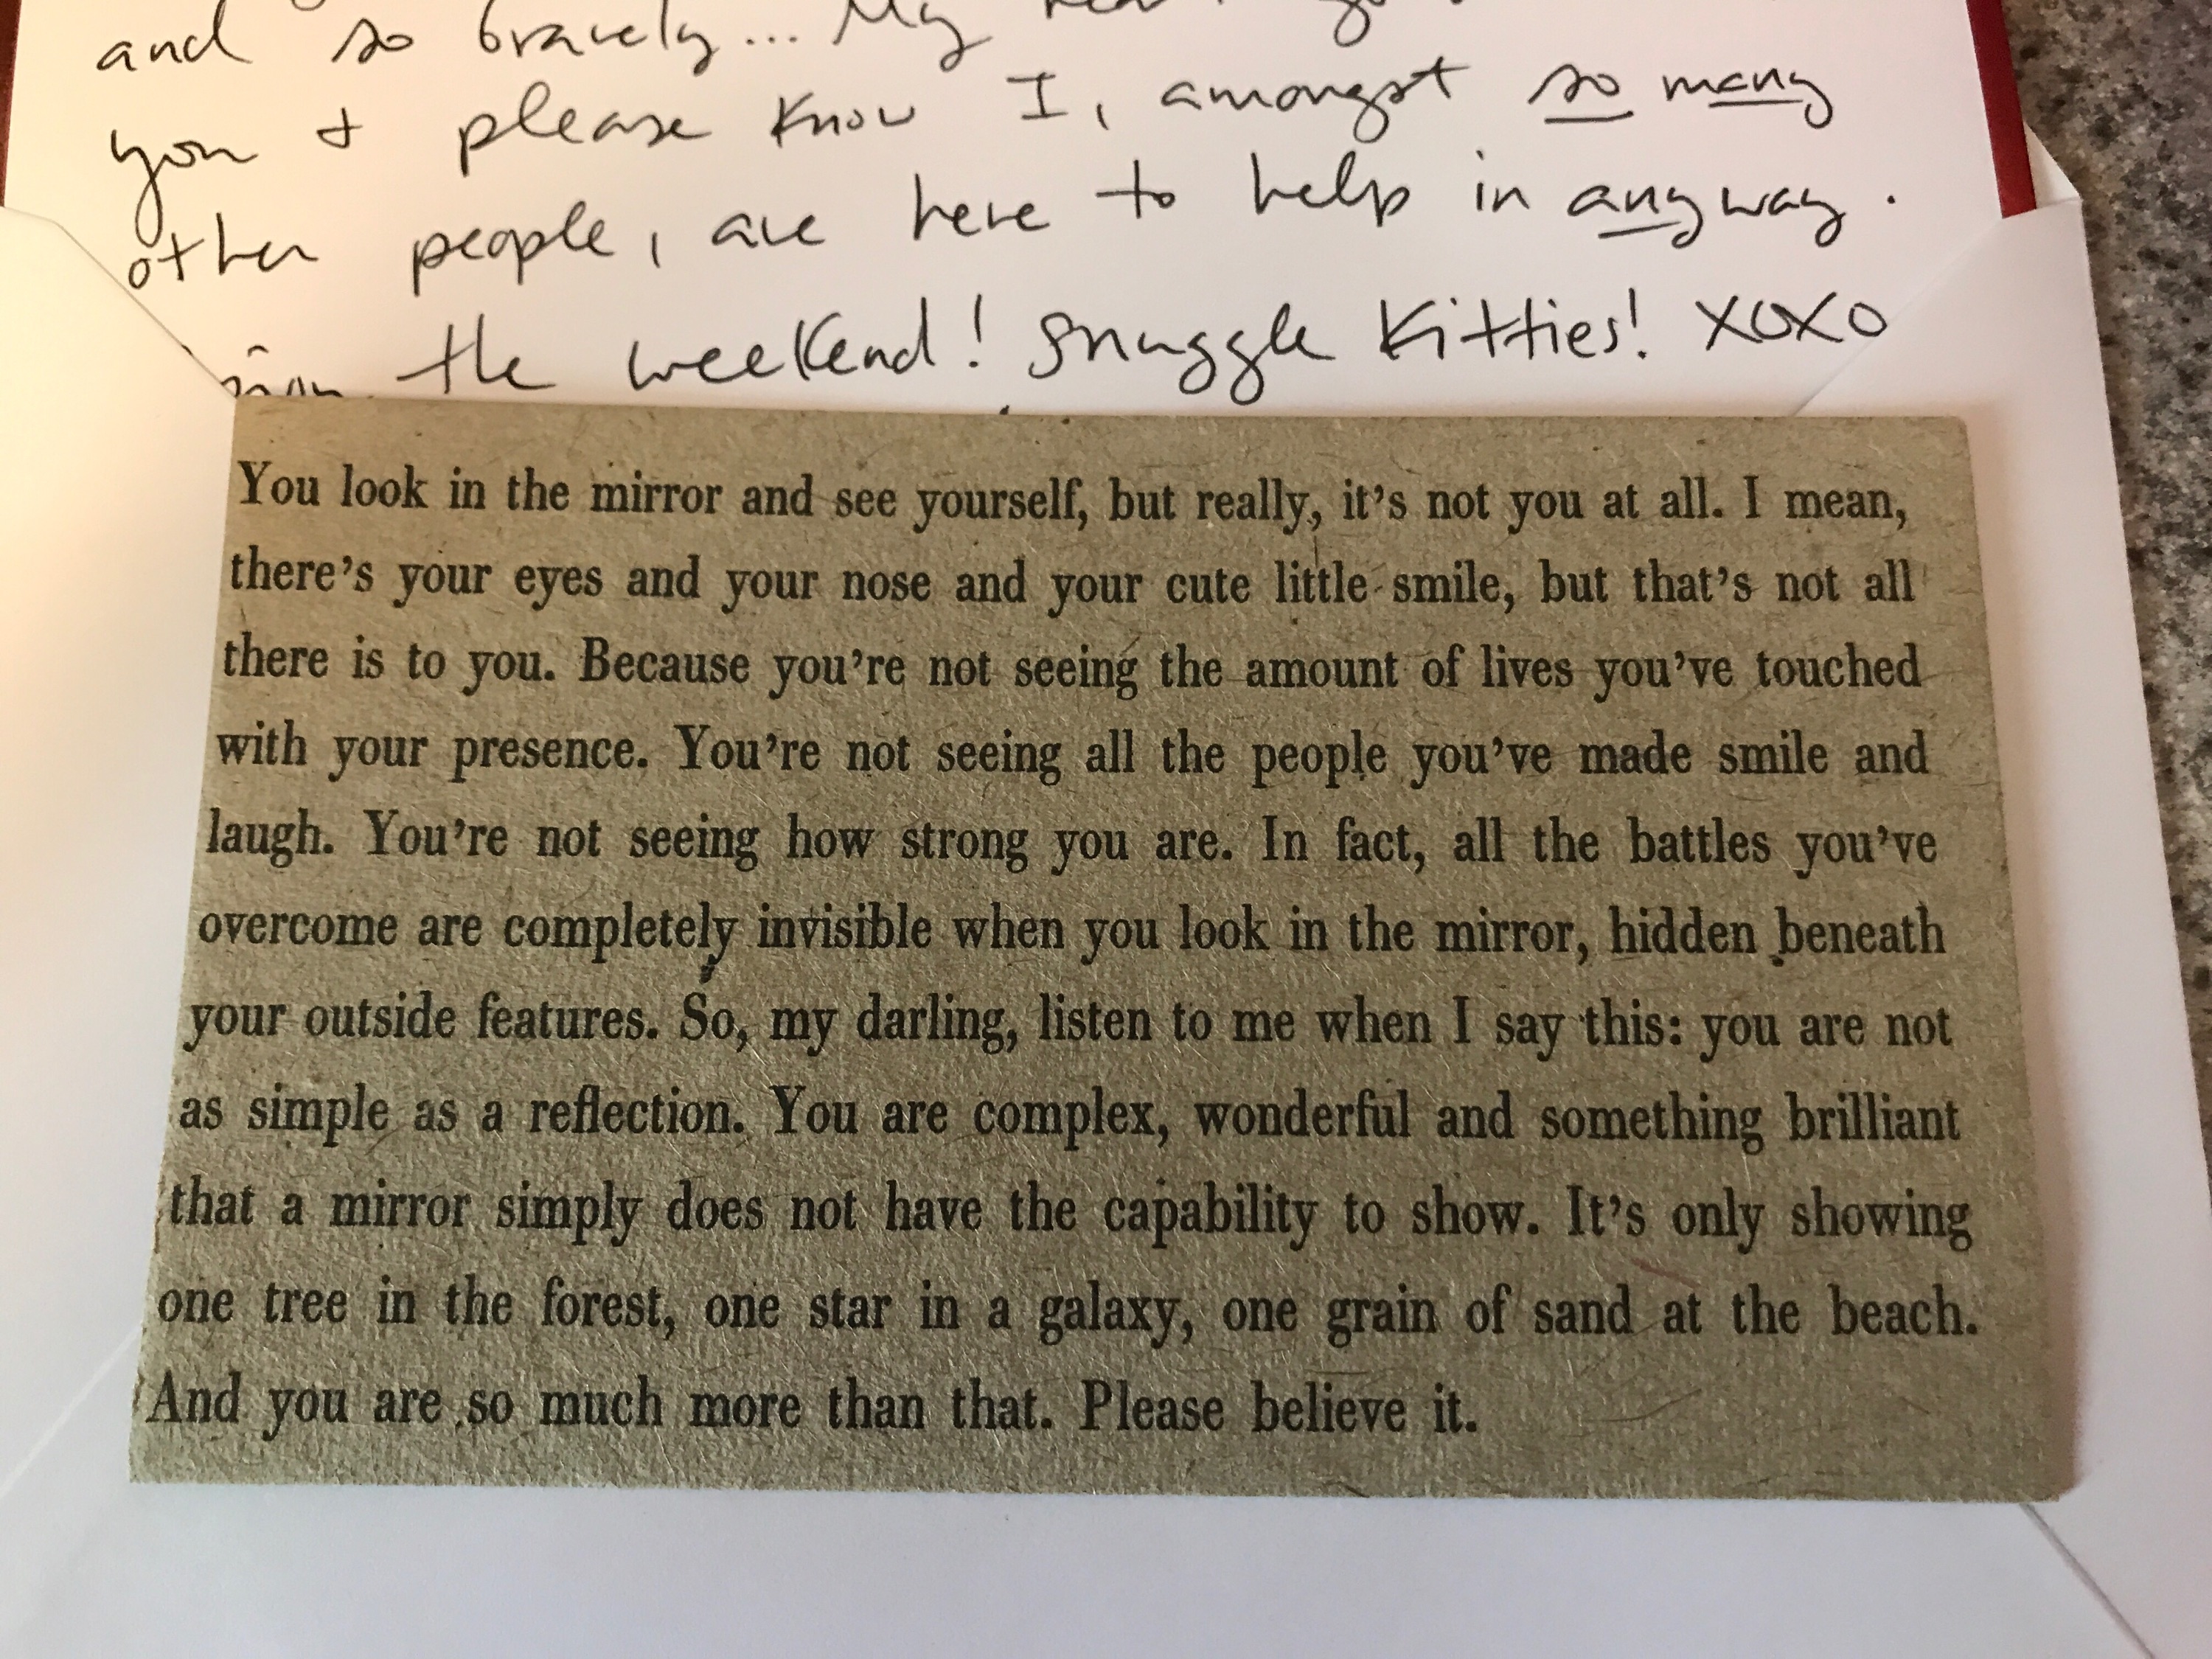 and so bravely... My
you + please know I, amongst so many
other people, are here to help in anyway.
the weekend! Snuggle Kitties! XOXO
You look in the mirror and see yourself, but really, it's not you at all. I mean,
there's your eyes and your nose and your cute little smile, but that's not all
there is to you. Because you're not seeing the amount of lives you've touched
with your presence. You're not seeing all the people you've made smile and
laugh. You're not seeing how strong you are. In fact, all the battles you've
overcome are completely invisible when you look in the mirror, hidden beneath
your outside features. So, my darling, listen to me when I say this: you are not
as simple as a reflection. You are complex, wonderful and something brilliant
that a mirror simply does not have the capability to show. It's only showing
one tree in the forest, one star in a galaxy, one grain of sand at the beach.
And you are so much more than that. Please believe it.